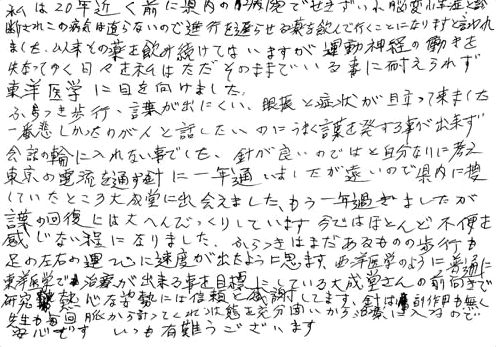 私は20年近く前に県内の病院でせきずい小脳変性症と診
断されこの病気は直らないので進行を遅らせる薬を飲んで行くことになりますと言われ
ました。以来その薬を飲み続けてないますが運動神経の働きを
失なってゆく日々を私はただそのままでいる事に耐えられず
東洋医学に目を向けました。
ふらつき歩行、言葉が出にくい、眼振と症状が目立って来ました
一番悲しかったのが人と話したいのにうまく言葉を発する事が出来ず
会話の輪に入れない事でした。針が良いのではと自分なりに考え
東京の電流を通す針に一年通いましたが遠いので県内に捜
していたところ大成堂に出会えました。もう一年過ぎましたが
言葉の回復には大へんびっくりしています今ではほとんど不便を
感じない程になりました。ふらつきはまだあるものの歩行も
足の左右の運びに速度が出たように思います。西洋医学のように普通に
東洋医学で治療が出来る事を目標にしている大成堂さんの前向きで
研究熱心な姿勢には信頼と感謝してます。針は副作用も無く
先生も毎回脈から診ってくれ状態を充分聞いてから治療に入るので
安心です いつも有難うございます